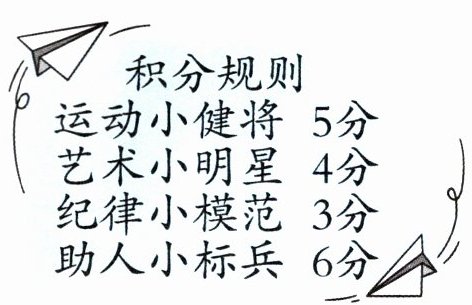 积分规则
运动小健将 5分
艺术小明星 4分
纪律小模范 3分
助人小标兵 6分